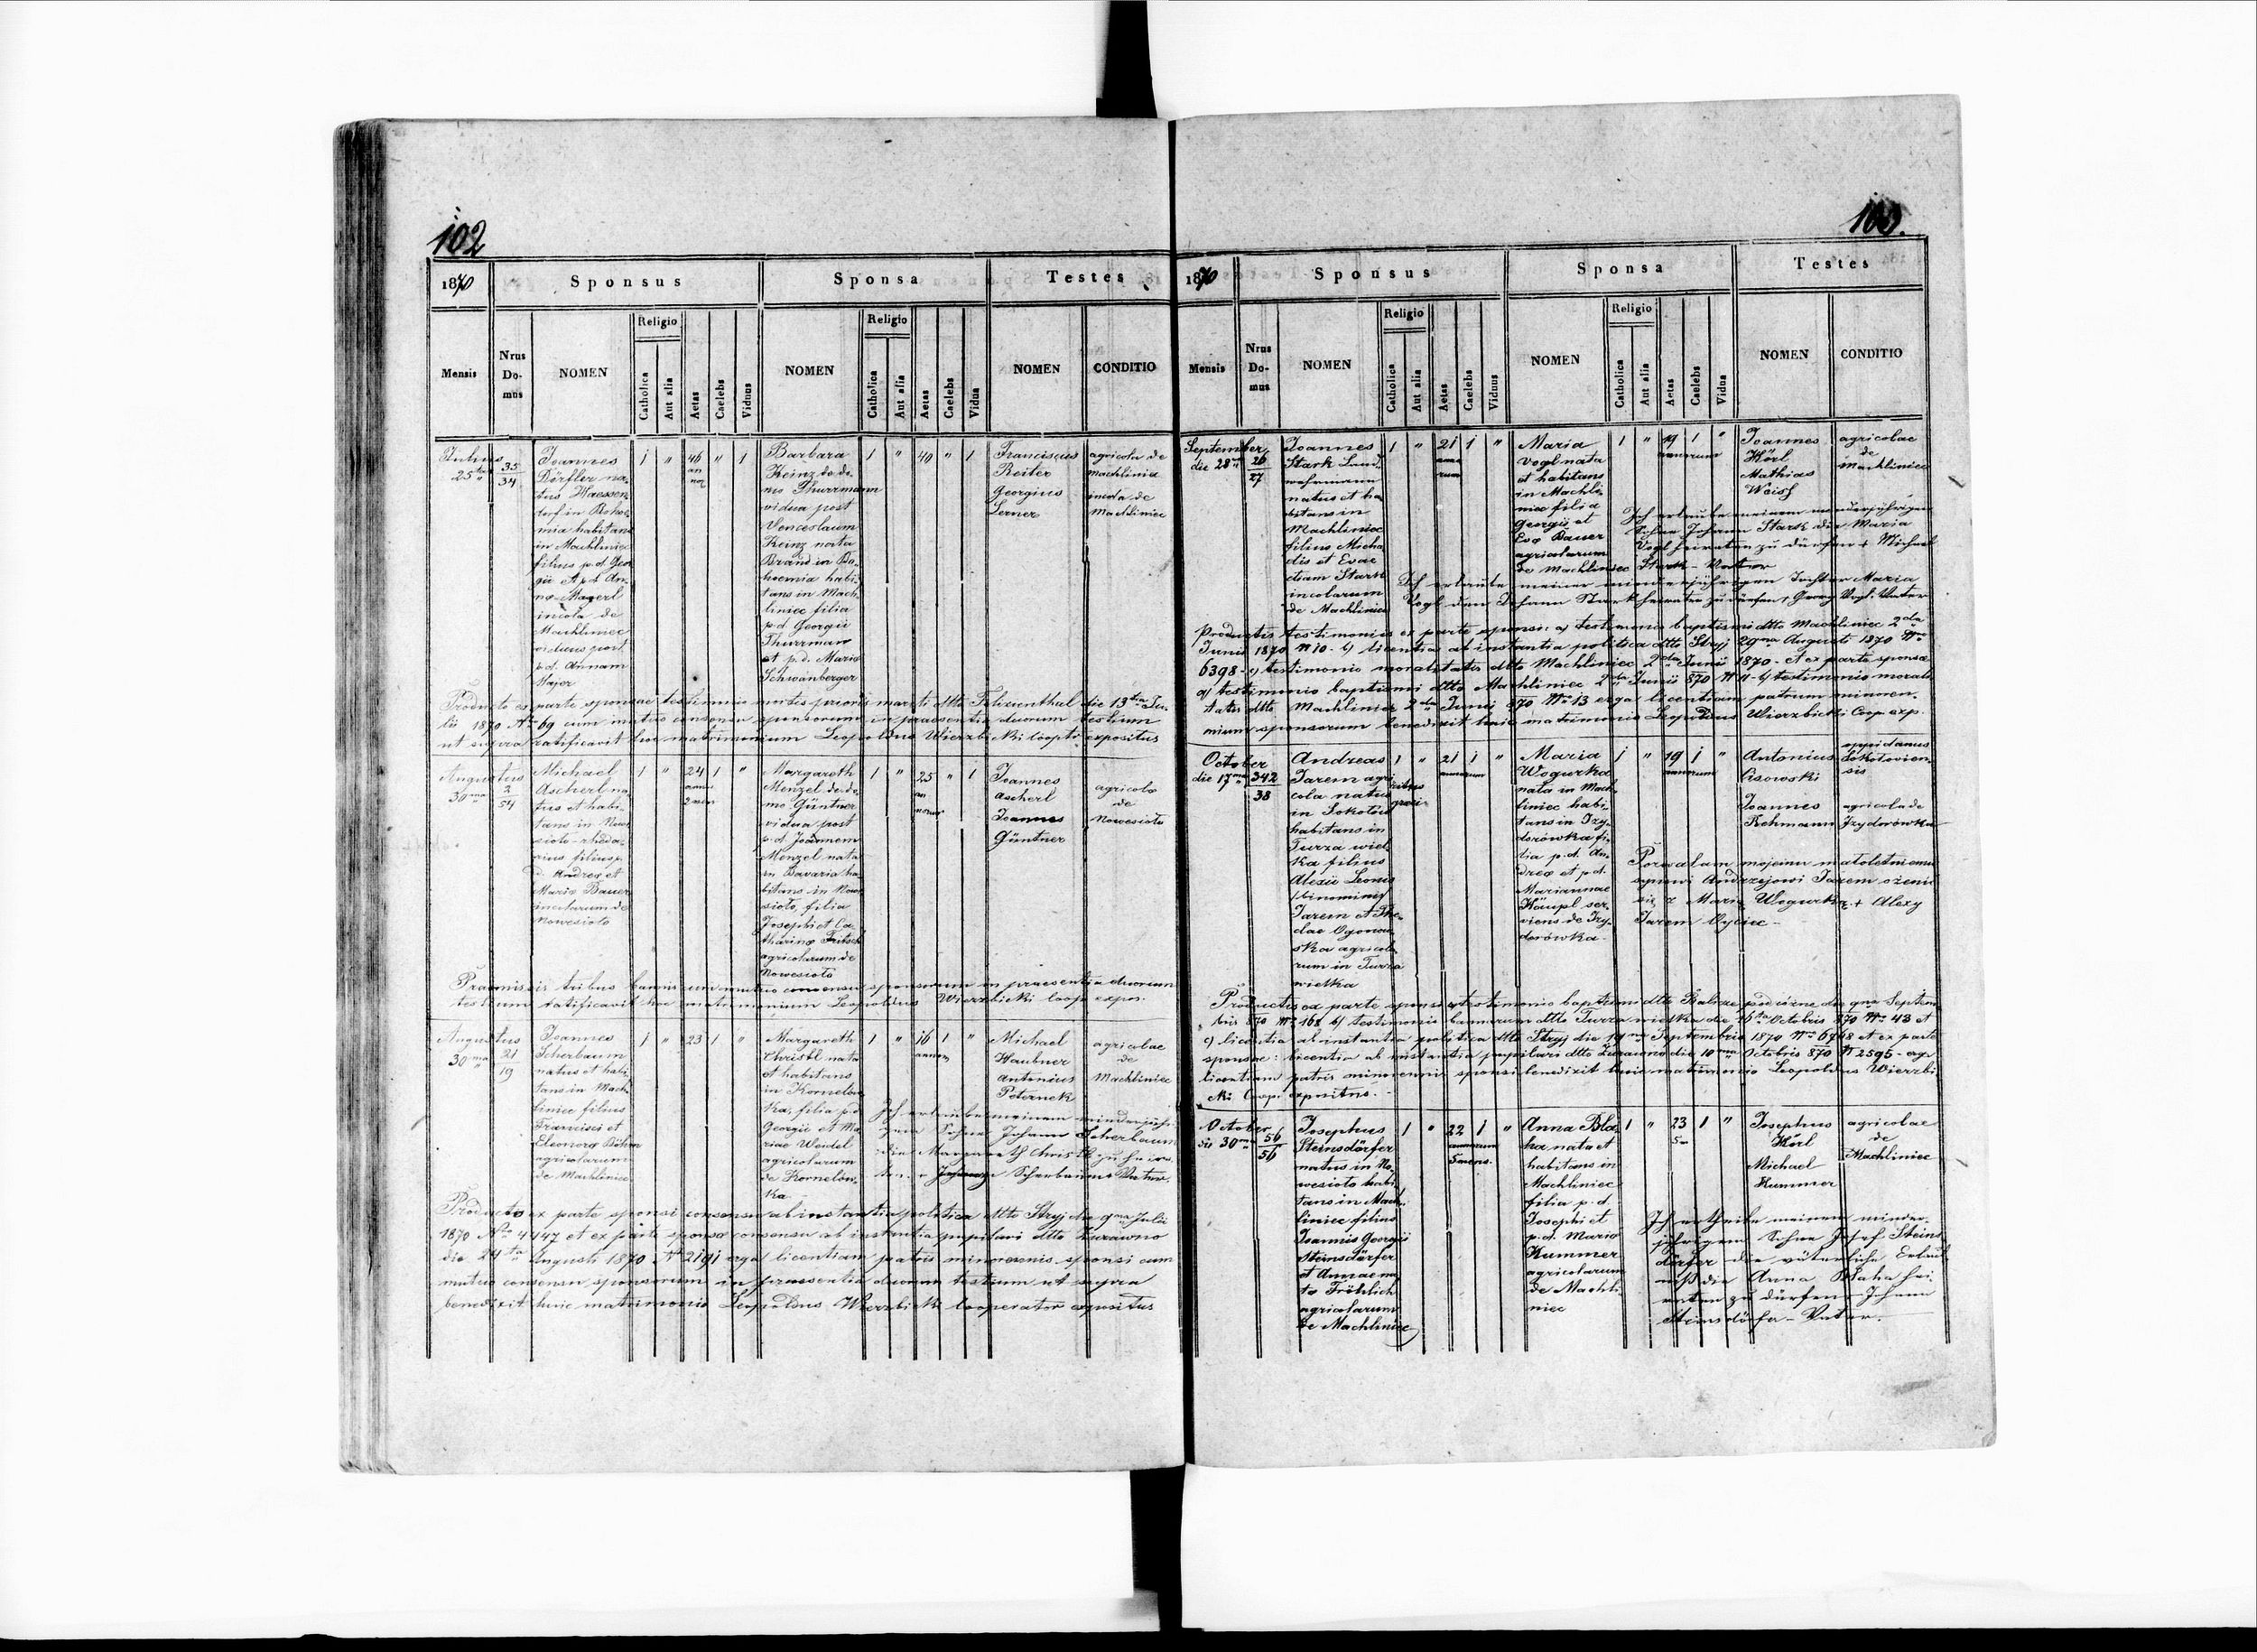 102
1870
Sponsus
Sponsa
Testes
Mensis
Nrus Do- mus
NOMEN
Religio
Catholica
Aut alia
Aetas
Caelebs
Viduus
NOMEN
Religio
Catholica
Aut alia
Aetas
Caelebs
Vidua
NOMEN
CONDITIO
Julius
25
35
34
Joannes
Dörfler na-
tus Haessen
dorf in Bohe-
mia habitans
in Machliniec
filius p.d. Geor
gii et p.d. An-
nae Mayerl
incola de
Machliniec
viduus post
p.d. Annam
Major
1 " 46 " 1
an
nor
Barbara
Keinz de do-
mo Thurrmann
vidua post
Venceslaum
Keinz nata
Brand in Bo-
hoemia habi-
tans in Mach-
liniec filia
p.d. Georgii
Thurrmann
et p.d. Maria
Schwanberger
1 " 40 " 1
Franciscus
Reiter
Georgius
Lerner
agricola de
Machliniec
incola de
Machliniec
Producto ex parte sponsae testimonio mortis prioris mariti dtto Felizienthal die 13 Ju-
lii 1870 Nro 69 cum mutuo consensu sponsorum in praesentia duorum testium
ut supra ratificavit hoc matrimonium Leopoldus Wierzbicki coopr expositus
Augustus
30
2
54
Michael
Ascherl na-
tus et habi-
tans in Nowe
sioto
rius filius p.
d. Andreae et
Maria Bauer
incolarum de
Nowesioto
1 " 24 1 "
2 men
Margareth
Menzel de do-
mo Güntner
vidua post
p.d. Joannem
Menzel nata
in Bavaria ha-
bitans in Nowe
sioto, filia
Josephi et Ca-
tharina Fritsch
agricolarum de
Nowesioto
1 " 25 " 1
Joannes
Ascherl
Joannes
Güntner
agricola
de
Nowesioto
Praemissis tribus bannis cum mutuo consensu sponsorum in praesentia duorum
testium ratificavit hoc matrimonium Leopoldus Wierzbicki coop expos.
Augustus
30
21
19
Joannes
Scherbaum
natus et habi-
tans in Mach-
liniec filius
Francisci et
Eleonora Böhm
agricolarum
de Machliniec
1 " 23 1 "
Margareth
Christl nata
et habitans
in Kornelow-
ka, filia p.d.
Georgii et Ma-
riae Weidel
agricolarum
de Kornelow-
ka
1 " 16 1 "
Michael
Haubner
Antonius
Peternek
agricolae
de
Machliniec
Ich erlaube meinem minderjähri-
gen Sohne Johann Scherbaum
die Margareth Christl zu heira-
ten. + Scherbaum Vater.
Producto ex parte sponsi consensu ab instantia politica dtto Stryj die 9 Julii
1870 Nro 4447 et ex parte sponsa consensu ab instantia pupilari dtto Zurawno
die 24 Augusti 1870 N 2191 erga licentiam patris minorennis sponsi cum
mutuo consensu sponsorum in praesentia duorum testium ut supra
benedixit huic matrimonio Leopoldus Wierzbicki cooperator expositus
103.
1870
Sponsus
Sponsa
Testes
Mensis
Nrus Do- mus
NOMEN
Religio
Catholica
Aut alia
Aetas
Caelebs
Viduus
NOMEN
Religio
Catholica
Aut alia
Aetas
Caelebs
Vidua
NOMEN
CONDITIO
September
die 28
26
27
Joannes
Stark Land-
wehrmann
natus et ha
bitans in
Machliniec
filius Micha
elis et Evae
etiam Stark
incolarum
de Machliniec
1 " 21 1 "
anno
rum
Maria
Vogl nata
et habitans
in Machli-
niec filia
Georgii et
Eva Bauer
agricolarum
de Machliniec
1 " 19 1 "
annorum
Joannes
Hörl
Mathias
Weiss
agricolae
de
Machliniec
Ich erlaube meinem minderjährigen
Sohne Johann Stark die Maria
Vogl heiraten zu dürfen + Michael
Stark - Vater
Ich erlaube meiner minderjährigen Tochter Maria
Vogl den Johann Stark heiraten zu dürfen + Georg Vogl. Vater
Productis testimoniis ex parte sponsi: a) testimonio baptismi dtto Machliniec 2da
Junii 1870 N 10 - b) licentia ab instantia politica dtto Stryj 29 Augusti 1870 Nro
6398 - c) testimonio moralitatis dtto Machliniec 2da Junii 1870 - et ex parte sponsae
a) testimonio baptismi dtto Machliniec 2da Junii 870 N 11 - b) testimonio morali
tatis dtto Machliniec 2da Junii 870 Nro 13 erga licentiam patrum minoren-
nium sponsorum benedixit huic matrimonio Leopoldus Wierzbicki Coop. exp.
October
die 17
342
38
Andreas
Jarem agri
cola natus
in Sokołow
habitans in
Turza wiel
ka filius
Alexii Leonis
binominis
Jarem et The-
clae Ogonow
ska agricola
rum in Turza
wielka
1 " 21 1 "
annorum
Maria
Wogurka
nata in Mach-
liniec habi-
tans in Izy-
dorówka fi-
lia p.d. An-
dreae et p.d.
Mariannae
Häupl ser-
viens de Izy-
dorówka -
1 " 19 1 "
annorum
Antonius
Cisowski
Joannes
Rehmann
oppidanus
Sokołovien-
sis
agricola de
Izydorówka
Pozwalam mojemu małoletniemu
synowi Andrzejowi Jarem ożenić
się z Marią Wogurką + Alexy
Jarem Oyciec -
Productis ex parte sponsi a) testimonio baptismi dtto Balicze podrózne die 9na Septem
bris 870 Nro 168 b) testimonio bannorum dtto Turza wielka die 16 Octobris 870 Nro 43 et
c) licentia ab instantia politica dtto Stryj die 19 Septembris 1870 Nro 6768 et ex parte
sponsae: licentia ab instantia pupilari dtto Zurawno die 10 Octobris 870 N 2595 - erga
licentiam patris minorennis sponsi benedixit huic matrimonio Leopoldus Wierzbi
cki Coop. expositus. -
October
die 30
56
56
Josephus
Steinsdörfer
natus in No-
wesioto habi-
tans in Mach-
liniec filius
Joannis Georgii
Steinsdörfer
et Annae na-
ta Fröhlich
agricolarum
de Machliniec
1 " 22 1 "
annorum
5 mens.
Anna Bla-
ha nata et
habitans in
Machliniec
filia p.d.
Josephi et
p.d. Maria
Kummer
agricolarum
de Machli-
niec
1 " 23 1 "
Josephus
Hörl
Michael
Kummer
agricolae
de
Machliniec
Ich ertheile meinem minder-
jährigen Sohne Josef Steins-
dörfer die väterliche Erlaub-
niß die Anna Blaha hei-
raten zu dürfen + Johann
Steinsdörfer - Vater.